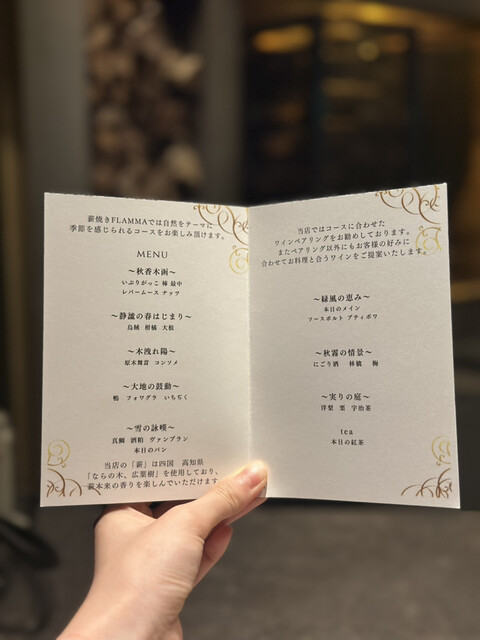 薪焼きFLAMMAでは自然をテーマに
季節を感じられるコースをお楽しみ頂けます。
MENU
〜秋香木画〜
いぶりがっこ 柿 最中
レバームース ナッツ
〜静謐の春はじまり〜
烏賊 柑橘 大根
〜木洩れ陽〜
原木舞茸 コンソメ
〜大地の鼓動〜
鴨 フォワグラ いちぢく
〜雪の詠嘆〜
真鯛 酒粕 ヴァンブラン
本日のパン
当店の「薪」は四国 高知県
「ならの木、広葉樹」を使用しており、
薪本来の香りを楽しんでいただけます。
当店ではコースに合わせた
ワインペアリングをお勧めしております。
またペアリング以外にもお客様の好みに
合わせてお料理と合うワインをご提案いたします。
〜緑風の恵み〜
本日のメイン
ソースポルト プティポワ
〜秋霧の情景〜
にごり酒 林檎 梅
〜実りの庭〜
洋梨 栗 宇治茶
tea
本日の紅茶